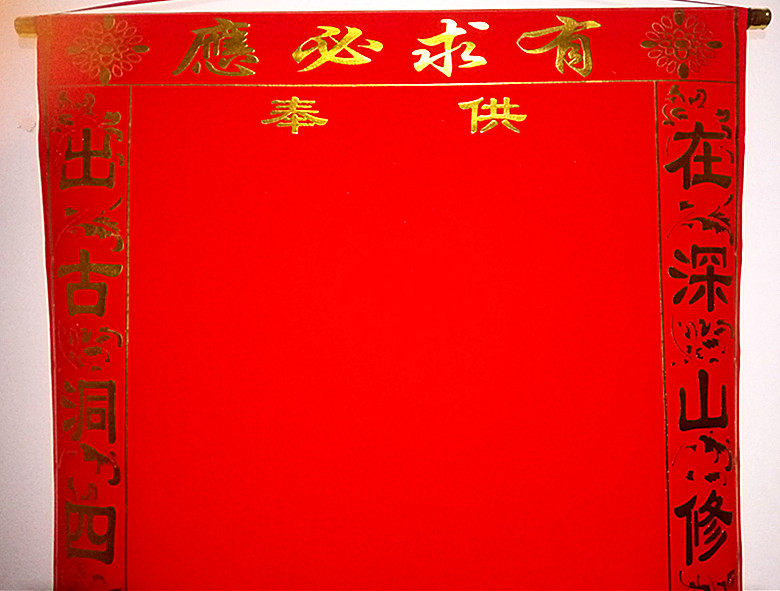 有求必應
供奉
在深山修
出古洞四